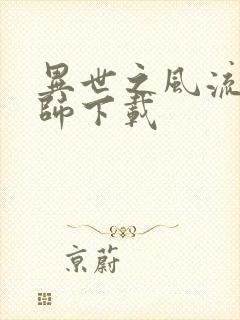 異世之風流
師下載
京蔚